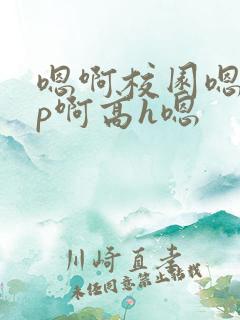 嗯啊校园嗯
p啊高h嗯
川崎直孝
未经同意禁止转载